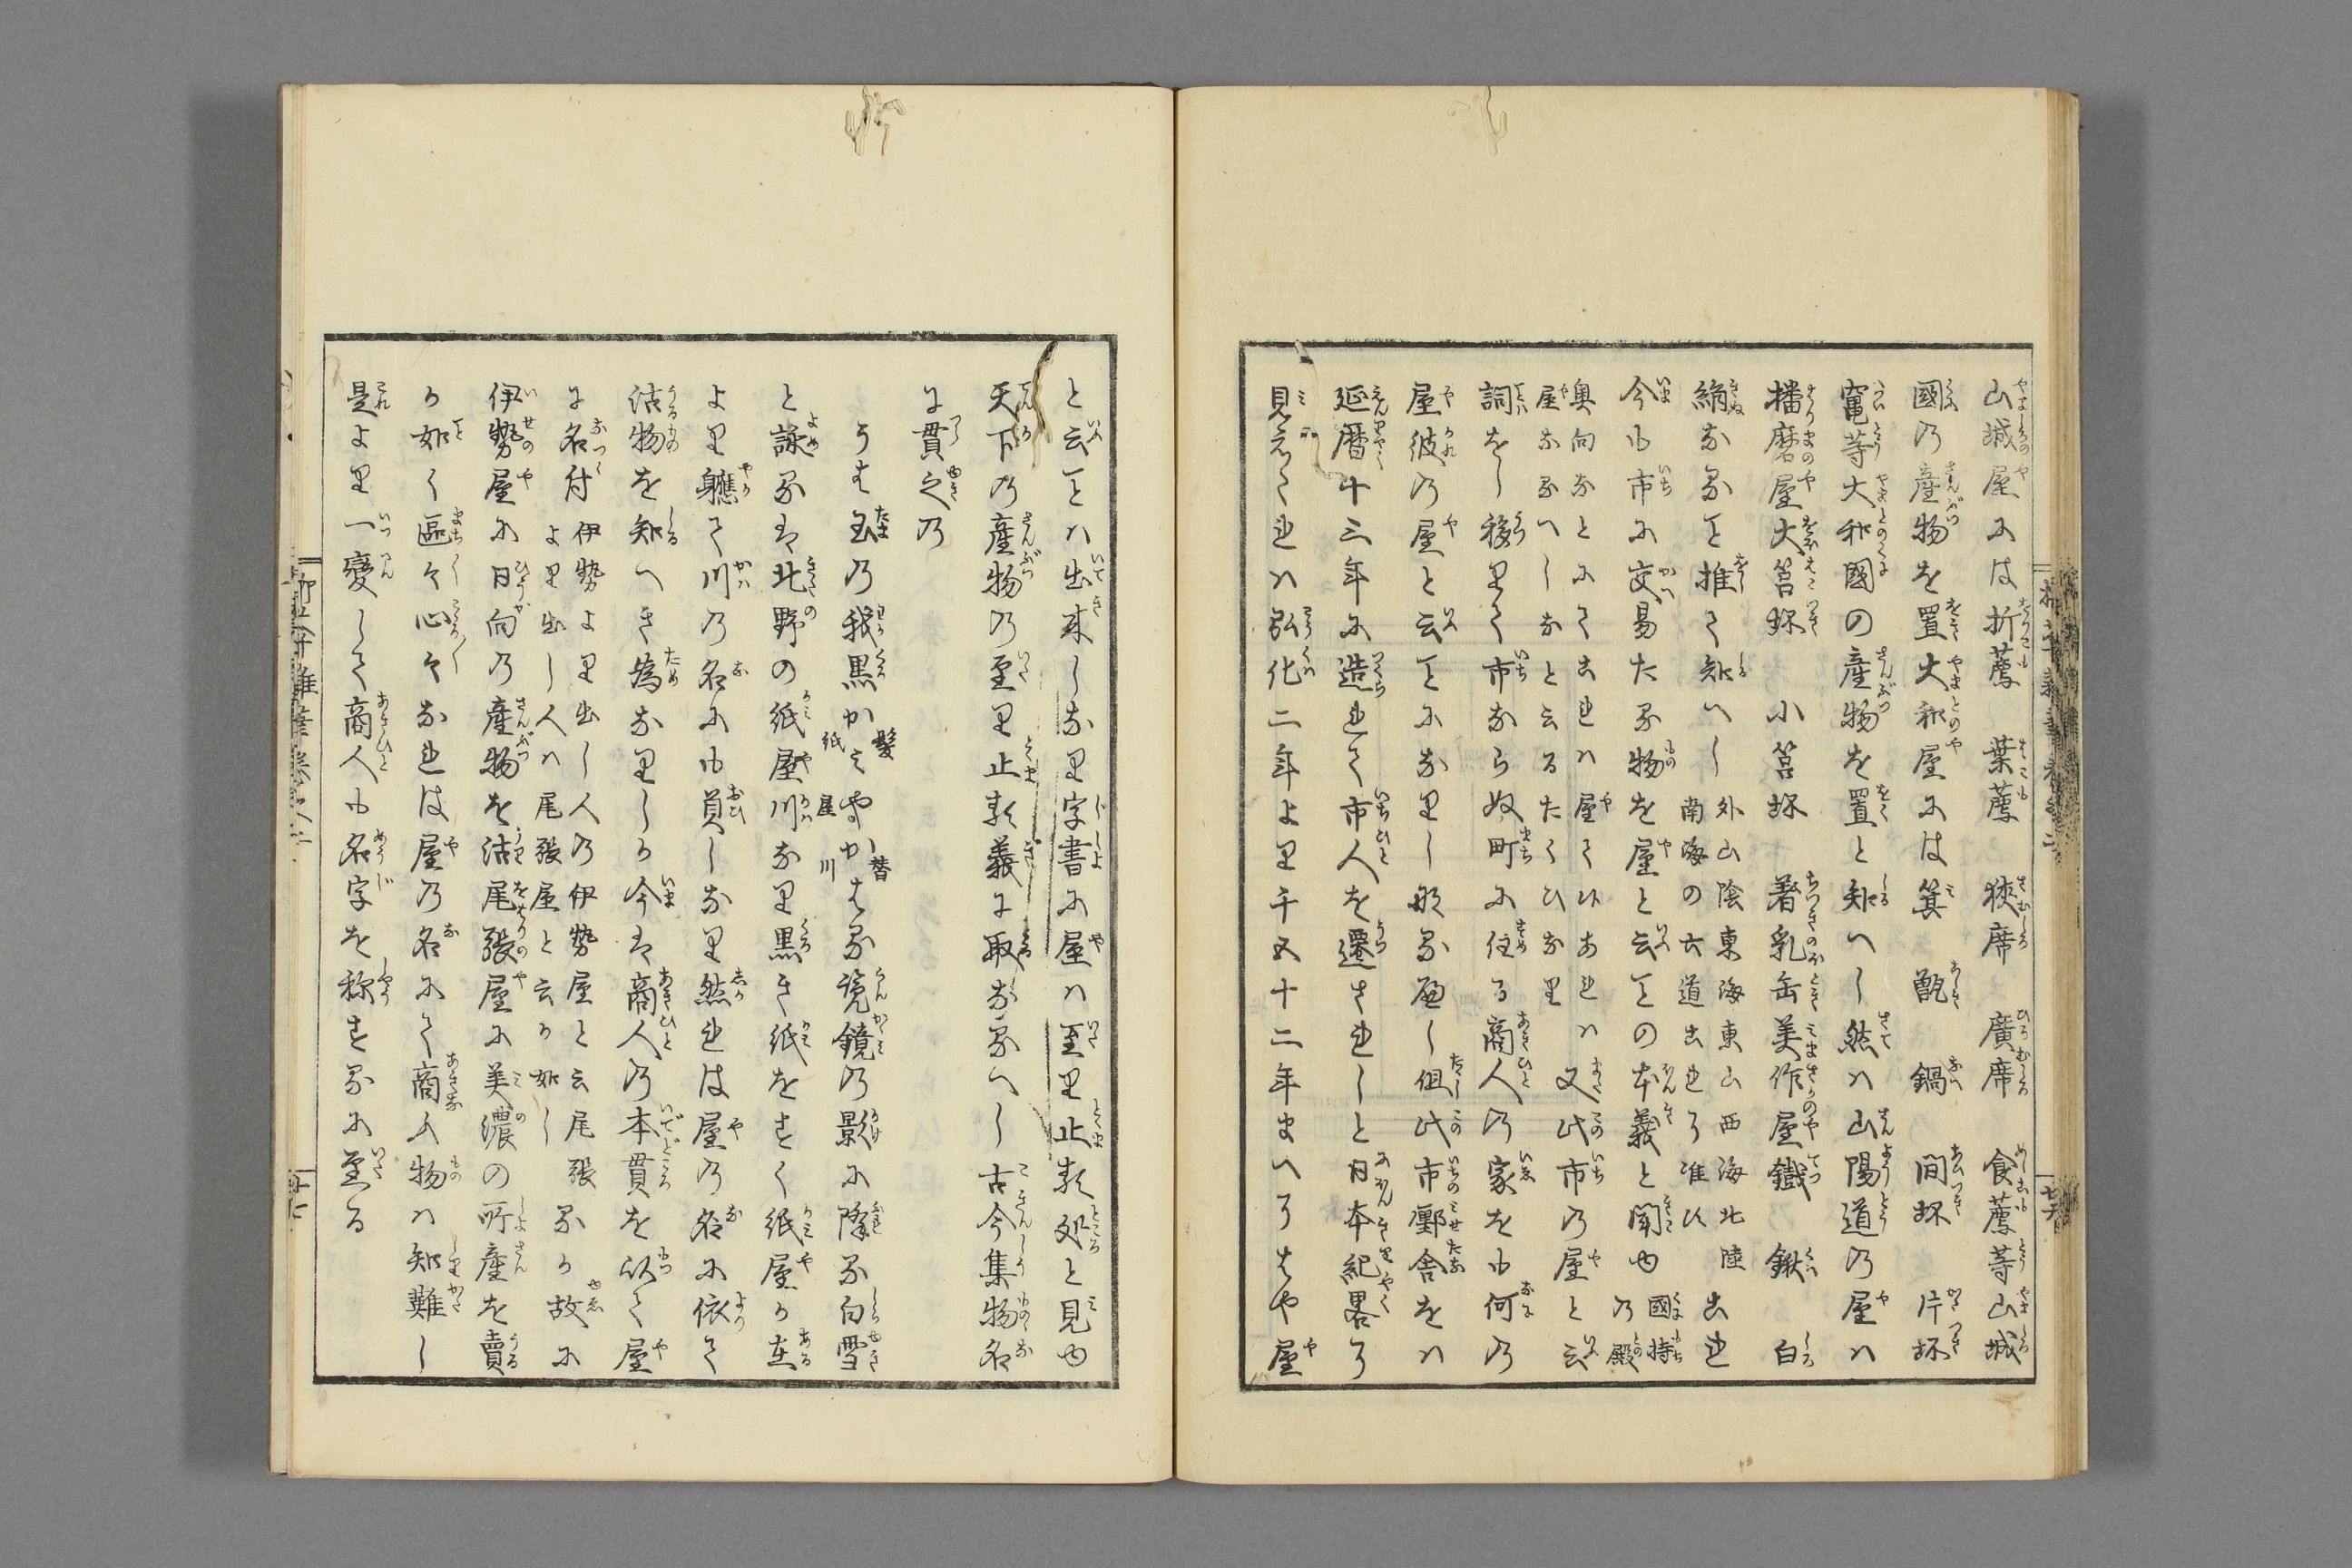 山城屋には折薦 葉薦 狭席 廣席 食薦等山城
國の産物を置大和屋には箕 甑 鍋 間坏 片坏
竃等大和國の産物を置と知へし然は山陽道の屋は
播磨屋大筥坏 小筥坏 著乳缶美作屋鐵 鍬 白
絹なるを推て知へし外山陰東海東山西海北陸
南海の六道これに准ひ
今も市に交易たる物を屋と云ことの本義と聞ゆ國持
の殿
奥向なとにてこれは屋
屋なるへしなと云るたくひなり又此市の屋と云
詞をし移りて市ならぬ町に住る商人の家をも何の
屋彼の屋と云ことになりし成るへし但此市鄽舎をは
延暦十三年に造られて市人を遷されしと日本紀畧に
見えたれは弘化二年より千五十二年まへにはや屋
と云ことは出来しなり字書に屋は至里止款処と見ゆ
天下の産物の至里止款義に取なるへし古今集物名
に貫之の
うは玉の我黒かみやかはる覧鏡の影に降る白雪
髪
紙屋川
替
と詠るは北野の紙屋川なり黒き紙をすく紙屋の在
より軈て川の名にも負しなり然れは屋の名に依て
沽物を知へき為なりしか今は商人の本貫を以て屋
に名付伊勢より出し人の伊勢屋と云尾張
より出し人は尾張屋と云か如しるか故に
伊勢屋に日向の産物を沽尾張屋に美濃の所産を賣
か如く區々心々なれは屋の名にて商ふ物は知難し
是より一變して商人も名字を称するに至る